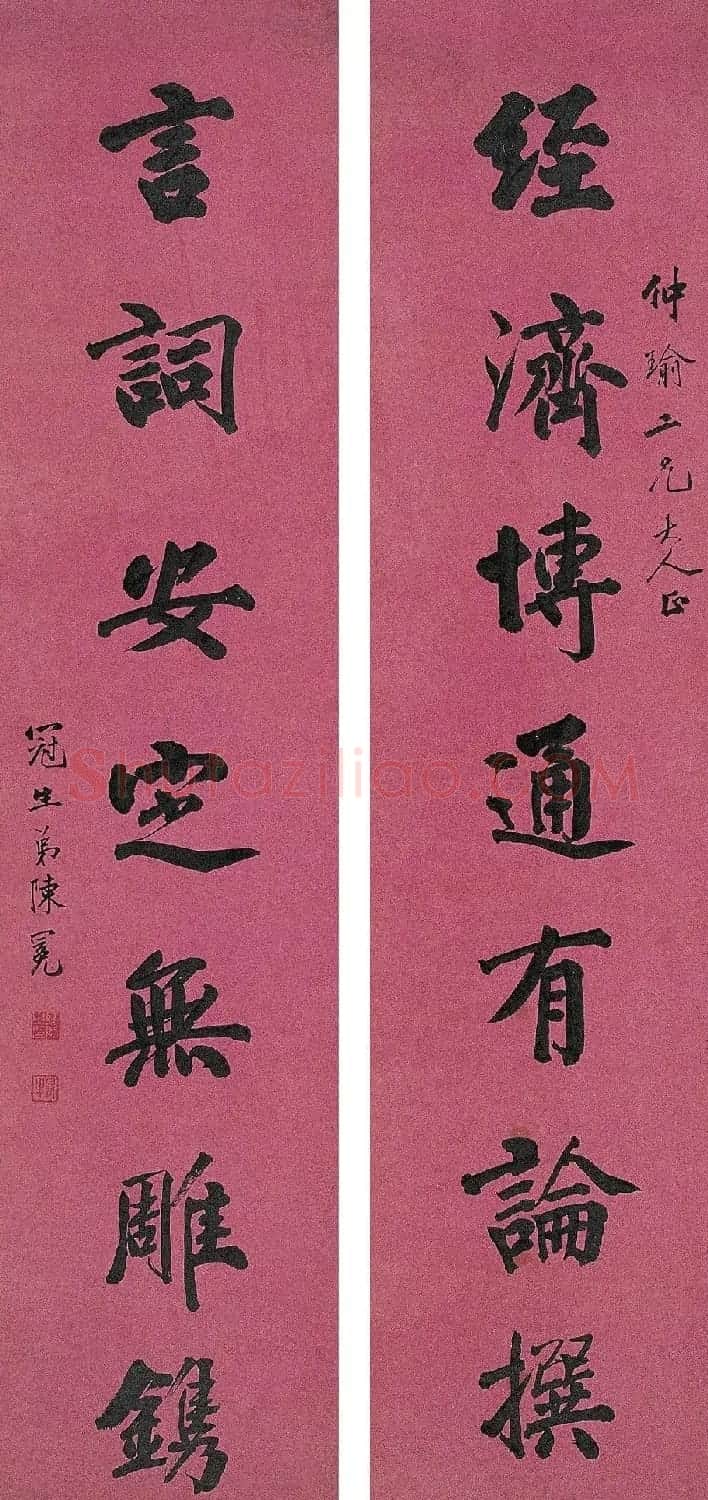 仲瑜二兄大人正
經濟博通有論撰
言詞安定無雕鐫
冠生弟陳冕
Shufaziliao.com